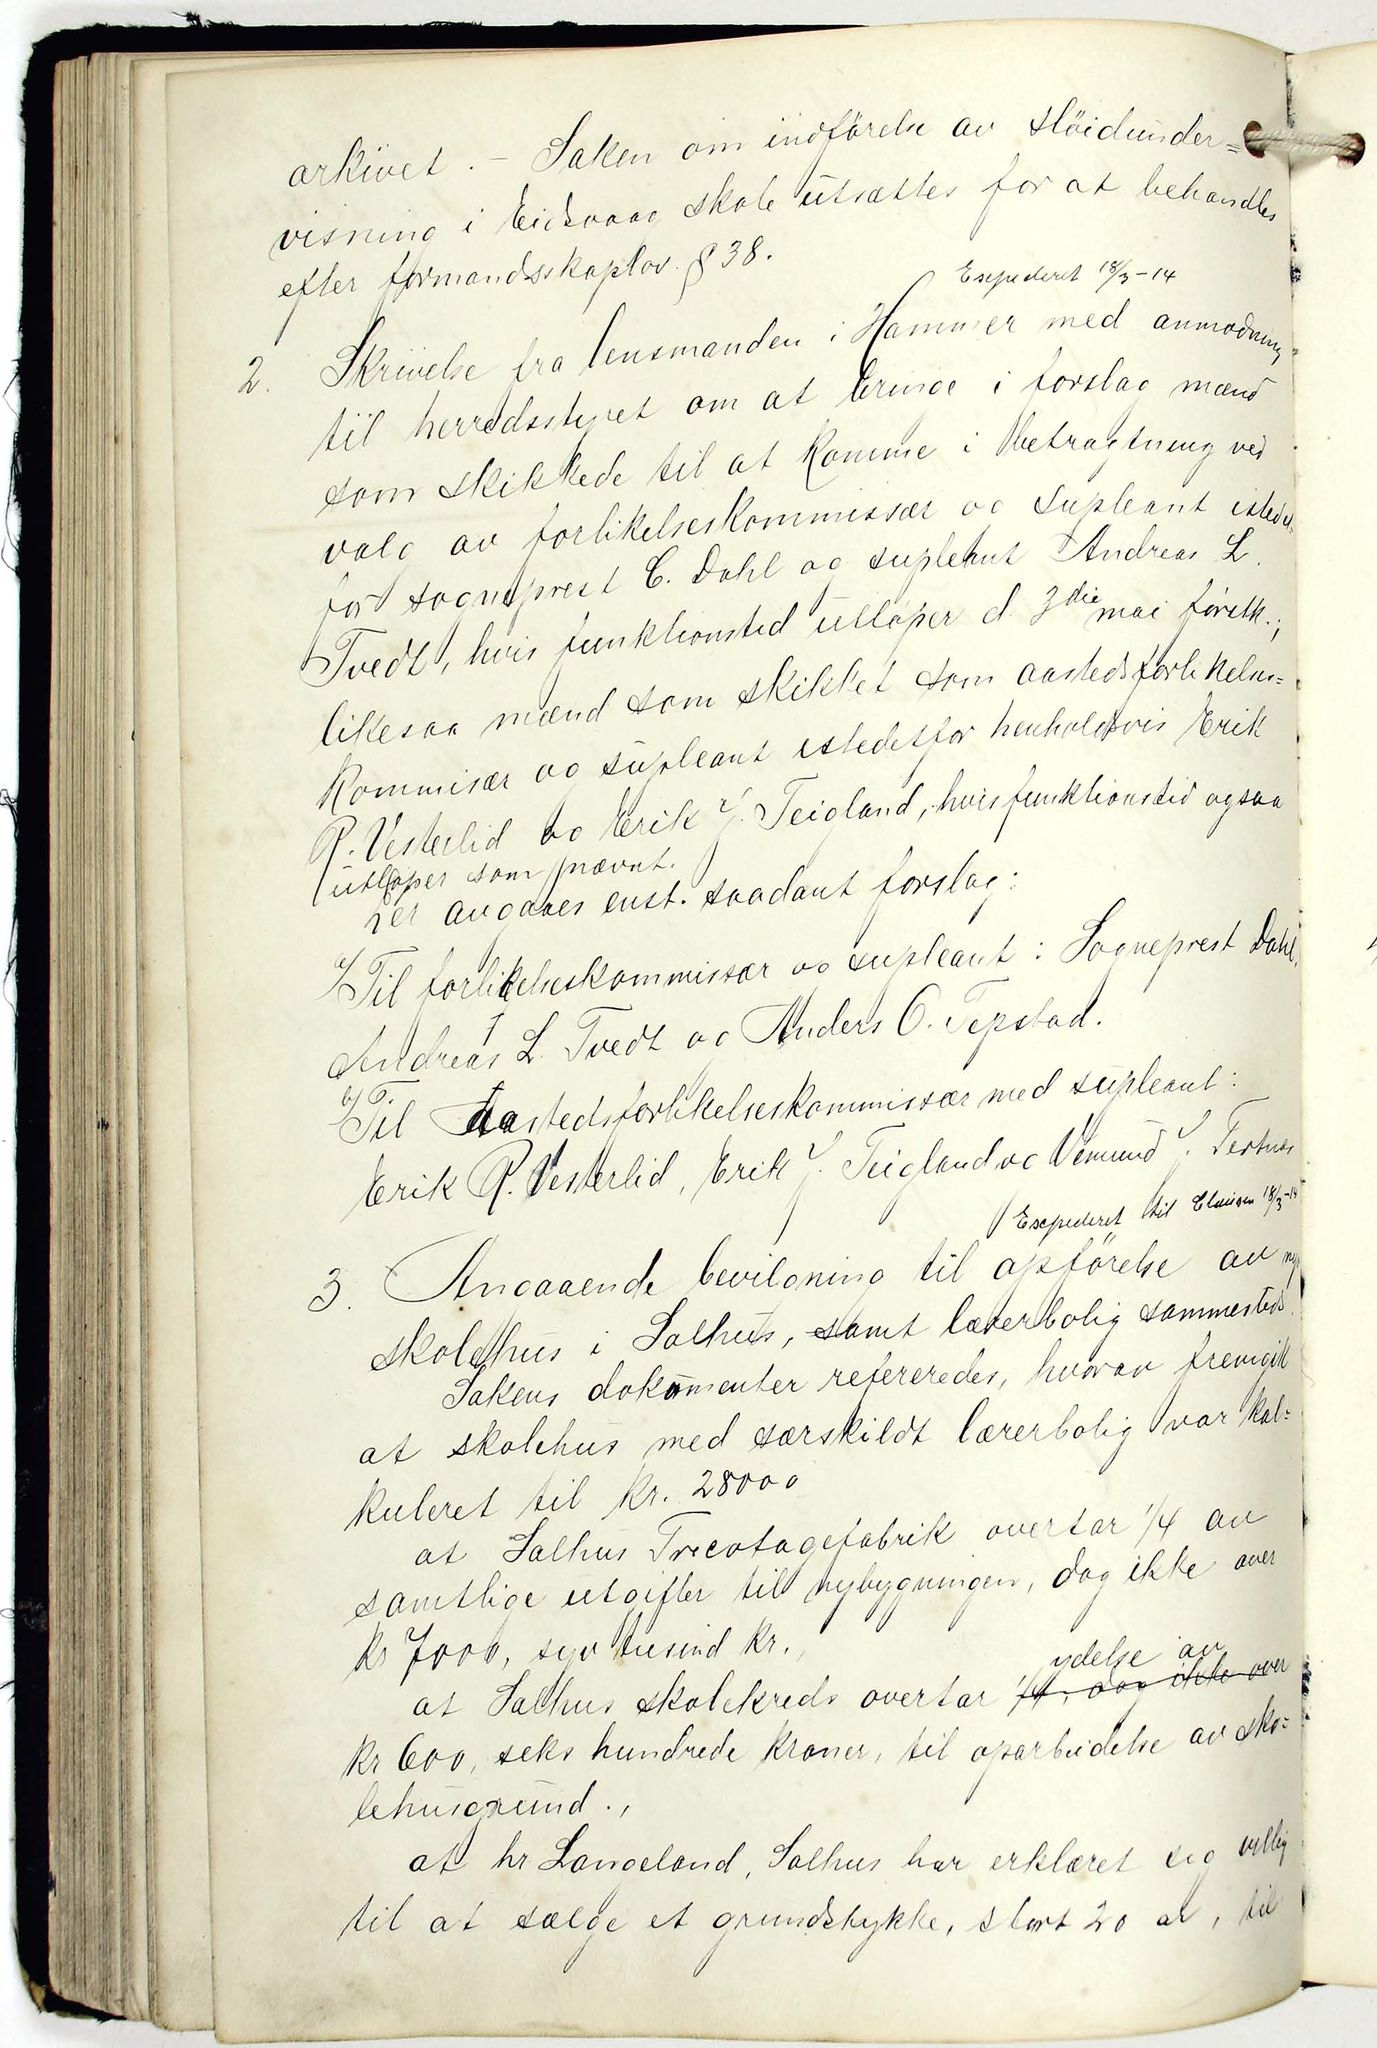 arkivet. – Saken om indförelse av slöidunder=
visning i Eidsvaag skole utsættes for at behandles
efter formandsskapslov. § 38.
Expederet 18/3-14
2. Skrivelse fra lensmanden i Hammer med anmodning
til herredsstyret om at bringe i forslag mænd
som skikkede til at komme i betragtning ved
valg av forlikelseskommissær og supleant istedet-
for sogneprest C. Dahl og supleant Andreas L.
Tvedt, hvis funktionstid utløper d. 3die mai førstk.;
likesaa mænd som skikket som aastedsforlikelses=
kommisær og supleant istedetfor henholdsvis Erik
R. Vesterlid og Erik J. Teigland, hvis funktionstid ogsaa
utløper som nævnt.
Der avgaaes enst. saadant forslag:
a/ Til forlikelseskommissær og supleant: Sogneprest Dahl,
Andreas L. Tvedt og Anders O. Tepstad.
b/ Til Aastedsforlikelseskommissær med supleant:
Erik R. Vesterlid, Erik J. Teigland og Vemund J. Tertnes
Expederet til Clausen 18/3-14
3. Angaaende bevilgning til opförelse av nyt
skolehus i Salhus, samt lærerbolig sammesteds.
Sakens dokumenter refereredes, hvorav fremgik
at skolehus med særskildt lærerbolig var kal=
kuleret til kr. 28000
at Salhus Tricotagefabrik overtar 1/4 av
samtlige utgifter til nybygningen, dog ikke over
kr 7000, syv tusind kr.,
ydelse av
at Salhus skolekreds overtar 1/4, dog ikke over
kr 600, seks hundrede kroner, til oparbeidelse av sko=
lehusgrund.,
at hr Langeland, Salhus har erklæret sig villig
til at sælge et grundstykke, stort 20 ar, til